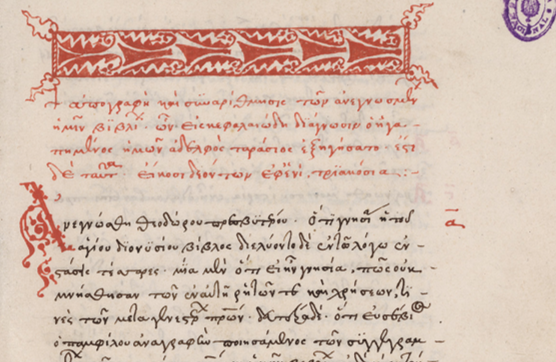 ἀπογραφὴ καὶ συναρίθμησις τῶν ἀνεγνωσμένων
ἡμῖν βιβλίων· ὧν εἰς κεφαλαιώδη διάγνωσιν ὁ ἠγα-
πημένος ἡμῶν ἀδελφὸς ταράσιος ἐξῃτήσατο· ἔστι
δὲ ταῦτα εἴκοσι δεόντων ἐφ' ἑνὶ τριακόσια
Ἀνεγνώσθη θεοδώρου πρεσβυτέρου· ὅτι γνησία ἡ τοῦ
α
ἁγίου διονυσίου βίβλος· διαλύονται δὲ ἐν τῷ λόγῳ ἐν-
στάσεις τέσσαρες· μία μὲν ὅτι εἰ ἦν γνησία, πῶς οὐκ
ἐμνήσθησαν τῶν ἐν αὐτῇ ῥητῶν τε καὶ χρήσεων, τι-
νὲς τῶν μεταγενεστέρων πρων· δευτέρα δὲ ὅτι εὐσέβιος
ὁ παμφίλου ἀναγραφὴν ποιησάμενος τῶν συγγραμ-